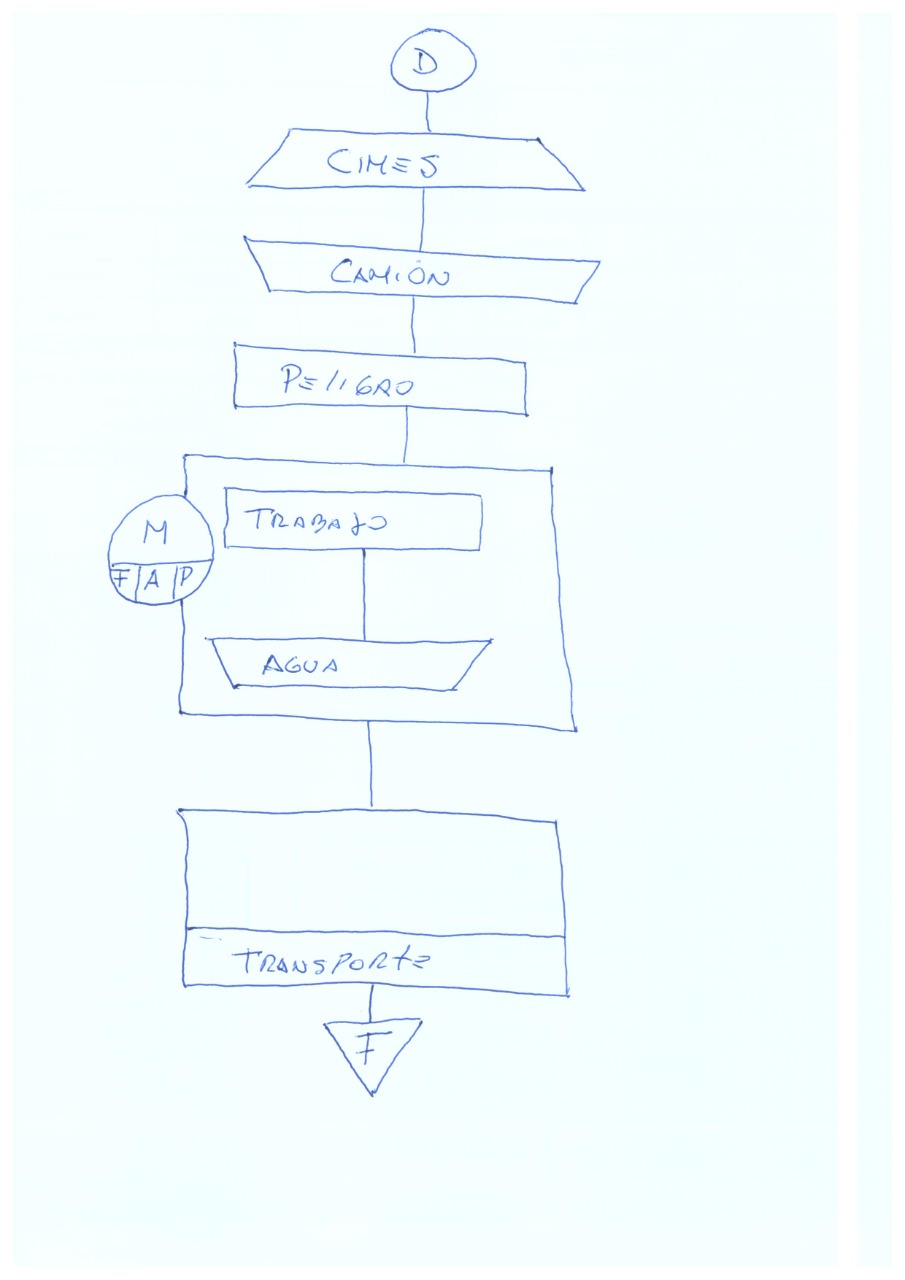 D
CIMES
CAMIÓN
PELIGRO
TRABAJO
M
F A P
AGUA
TRANSPORTE
F